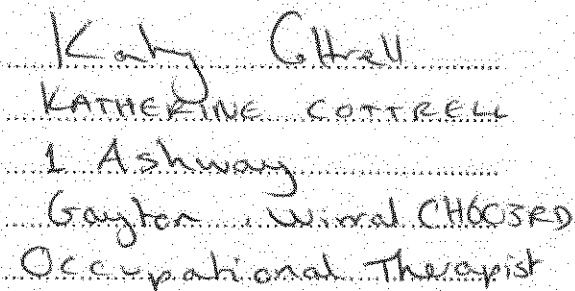 Katy Cottrell
KATHERINE COTTRELL
1 Ashway
Gayton, Wirral CH603RD
Occupational Therapist